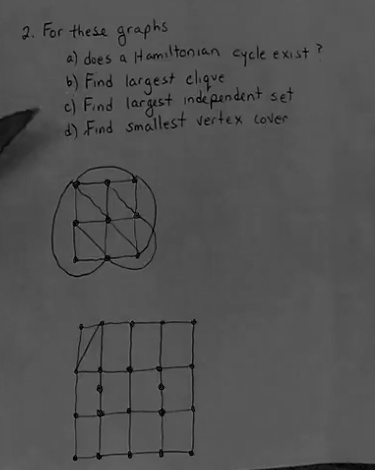 2. For these graphs
a) does a Hamiltonian cycle exist?
b) Find largest clique
c) Find largest independent set
d) Find smallest vertex cover